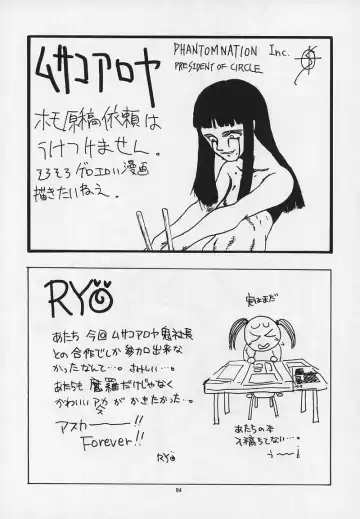 ムサコアロヤ
PHANTOMNATION Inc.
PRESIDENT OF CIRCLE
ホモ原稿依頼は
うけつけません。
そろそろゲロエロい漫画
描きたいねえ。
RYÖ
あたち 今回 ムサコアロヤ鬼社長
との合作でしか参加出来な
かったなんて…。かなしい…。
あたちも 魔羅だけじゃなく
かわいいアスカがかきたかった…。
アスカー!!
Forever!!
RYÖ
実はまだ
あたちの本
入稿してない…。
う〜〜
84